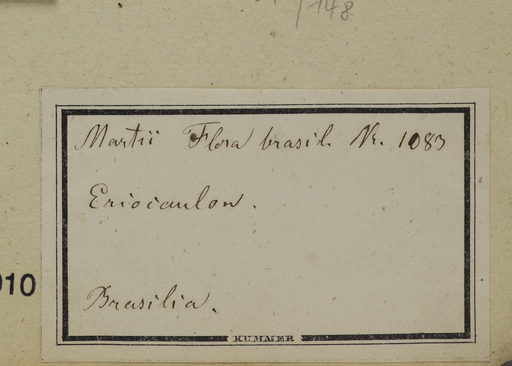 /148
Martii Flora brasil. Nr. 1083
Eriocaulon.
910
Brasilia.
KUMMER